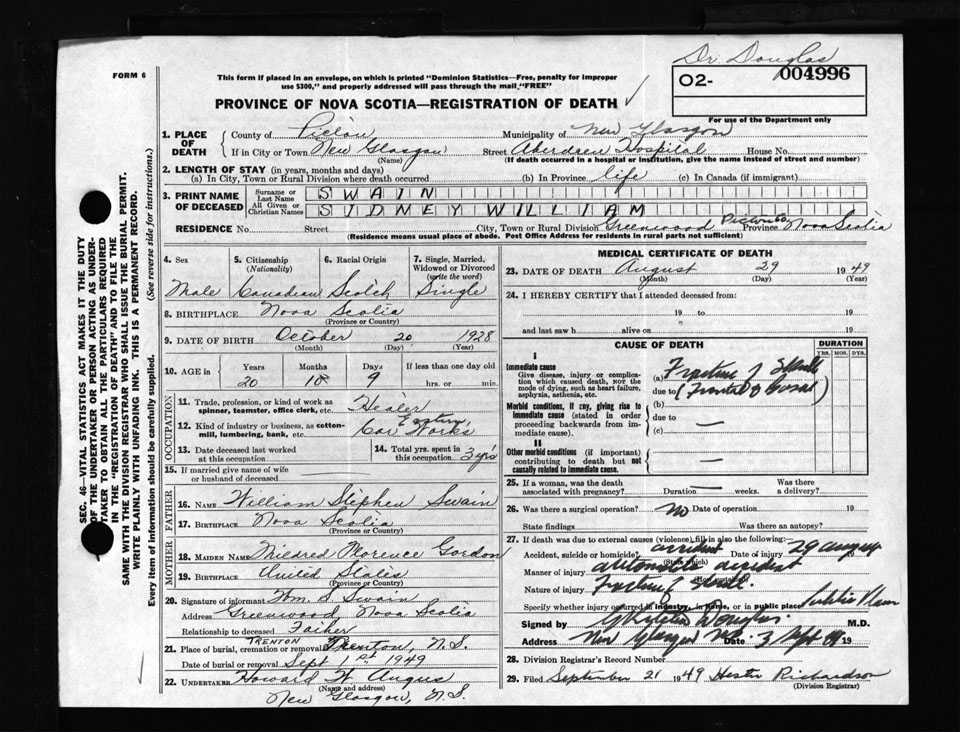 Dr Douglas
FORM 6
This form if placed in an envelope, on which is printed "Dominion Statistics—Free, penalty for improper
use $300," and properly addressed will pass through the mail "FREE"
O2- 004996
For use of the Department only
PROVINCE OF NOVA SCOTIA—REGISTRATION OF DEATH
1. PLACE OF DEATH
County of Pictou Municipality of New Glasgow
If in City or Town New Glasgow Street Aberdeen Hospital House No.
(Name) (If death occurred in a hospital or institution, give the name instead of street and number)
2. LENGTH OF STAY (in years, months and days)
(a) In City, Town or Rural Division where death occurred (b) In Province life (c) In Canada (if immigrant)
3. PRINT NAME OF DECEASED
Surname or Last Name SWAIN
All Given or Christian Names SIDNEY WILLIAM
RESIDENCE No. Street City, Town or Rural Division Greenwood Pictou Co Province Nova Scotia
(Residence means usual place of abode. Post Office Address for residents in rural parts not sufficient)
4. Sex 5. Citizenship (Nationality) 6. Racial Origin 7. Single, Married, Widowed or Divorced (write the word)
Male Canadian Scotch Single
8. BIRTHPLACE Nova Scotia
(Province or Country)
9. DATE OF BIRTH October 20 1928
(Month) (Day) (Year)
10. AGE in Years Months Days If less than one day old
20 10 9 hrs. or min.
OCCUPATION
11. Trade, profession or kind of work as
spinner, teamster, office clerk, etc. Heater
12. Kind of industry or business, as cotton-
mill, lumbering, bank, etc. Eastern Car Works
13. Date deceased last worked
at this occupation
14. Total yrs. spent in
this occupation 3 yrs
15. If married give name of wife
or husband of deceased
FATHER
16. NAME William Stephen Swain
17. BIRTHPLACE Nova Scotia
(Province or Country)
MOTHER
18. MAIDEN NAME Mildred Florence Gordon
19. BIRTHPLACE United States
(Province or Country)
20. Signature of informant Wm. S. Swain
Address Greenwood Nova Scotia
Relationship to deceased Father
TRENTON
21. Place of burial, cremation or removal Trenton, N.S.
Date of burial or removal Sept 1st 1949
22. UNDERTAKER Howard W. Angus
(Name and address)
New Glasgow, N.S.
MEDICAL CERTIFICATE OF DEATH
23. DATE OF DEATH August 29 1949
(Month) (Day) (Year)
24. I HEREBY CERTIFY that I attended deceased from:
19 to 19
and last saw h alive on 19
CAUSE OF DEATH DURATION
YRS. MOS. DYS.
I
Immediate cause
Give disease, injury or complica-
tion which caused death, NOR the
mode of dying, such as heart failure,
asphyxia, asthenia, etc.
(a) Fracture of Skull
due to
Morbid conditions, if any, giving rise to
immediate cause (stated in order
proceeding backwards from im-
mediate cause).
(b)
due to
(c)
II
Other morbid conditions (if important)
contributing to death but not
causally related to immediate cause.
25. If a woman, was the death
associated with pregnancy? Duration weeks. Was there
a delivery?
26. Was there a surgical operation? No Date of operation 19
State findings Was there an autopsy?
27. If death was due to external causes (violence) fill in also the following:
Accident, suicide or homicide? accident Date of injury 29 August
(State which)
Manner of injury automobile accident
Nature of injury Fracture of Skull.
Specify whether injury occurred in industry, in home, or in public place Public Place
Signed by Douglas M.D.
Address New Glasgow NS Date 3 Sept 19
28. Division Registrar's Record Number
29. Filed September 21 1949 Hester Richardson
(Division Registrar)
SEC. 46—VITAL STATISTICS ACT MAKES IT THE DUTY
OF THE UNDERTAKER OR PERSON ACTING AS UNDER-
TAKER TO OBTAIN ALL THE PARTICULARS REQUIRED
IN THE "REGISTRATION OF DEATH" AND TO FILE THE
SAME WITH THE DIVISION REGISTRAR WHO SHALL ISSUE THE BURIAL PERMIT.
WRITE PLAINLY WITH UNFADING INK. THIS IS A PERMANENT RECORD.
Every item of information should be carefully supplied. (See reverse side for instructions.)